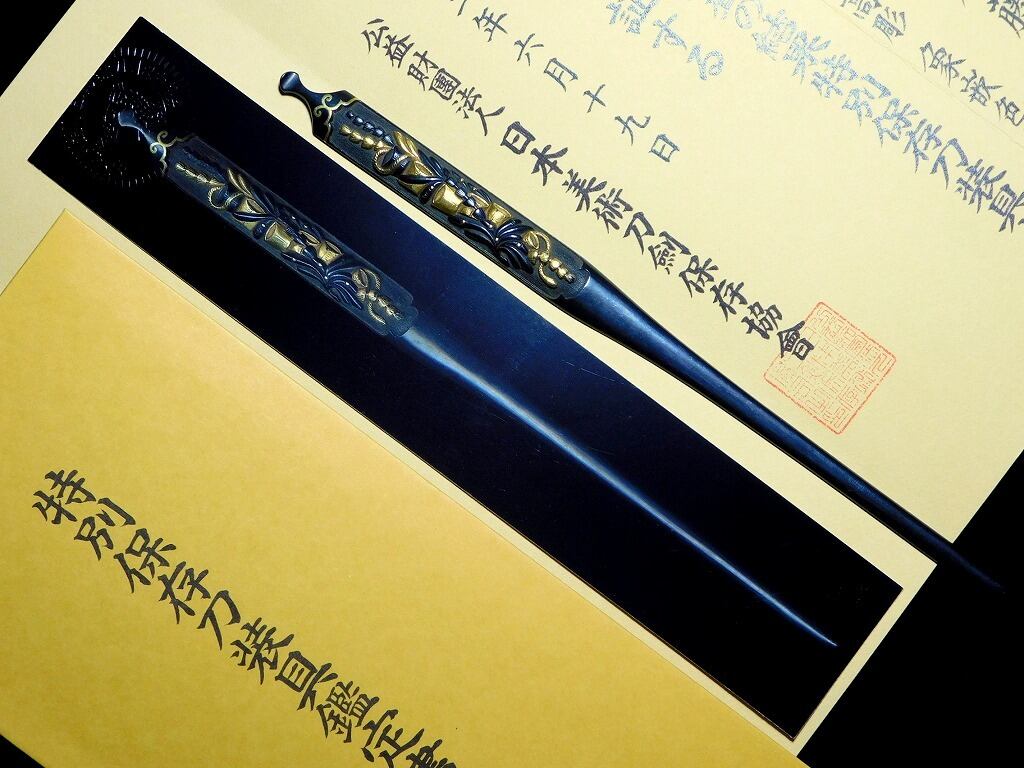 高彫 象嵌色
の結果特別保存刀装具
証する
年六月十九日
公益財團法人日本美術刀劍保存協會
特別保存刀装具鑑定書